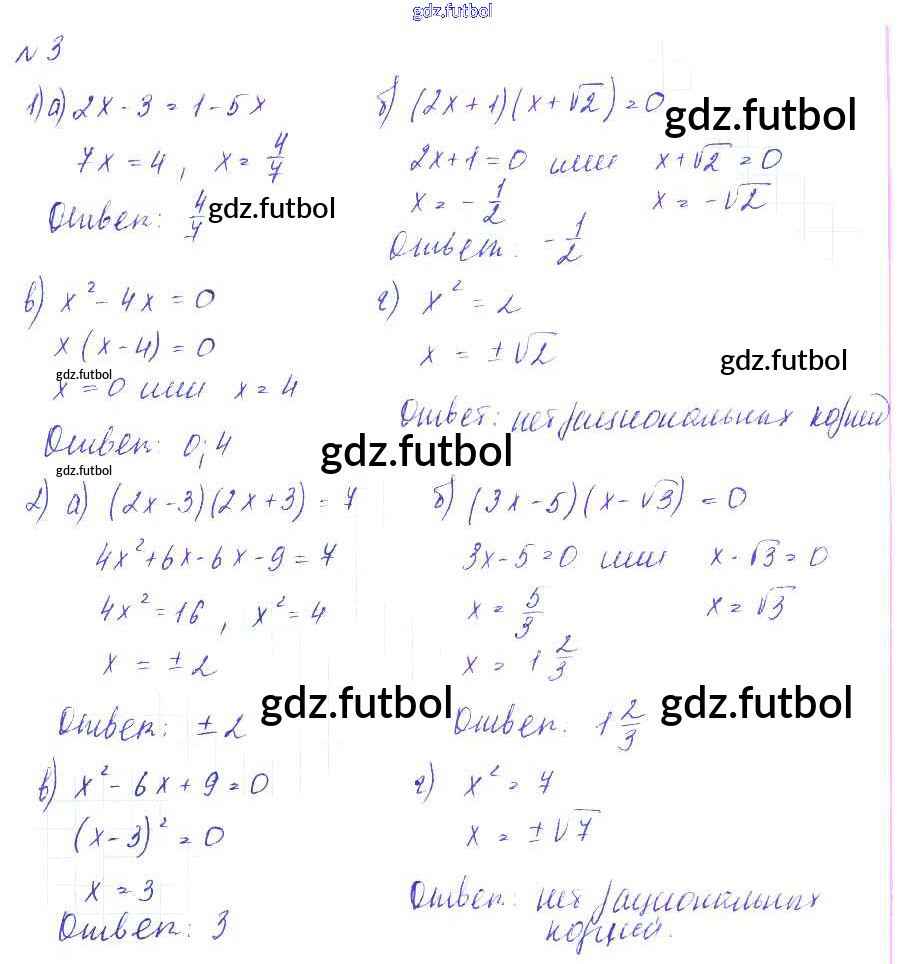 gdz.futbol
№ 3
1) а) 2x - 3 = 1 - 5x
7x = 4, x = 4/7
Ответ: 4/7
gdz.futbol
б) (2x + 1)(x + √2) = 0
gdz.futbol
2x + 1 = 0 или x + √2 = 0
x = - 1/2 x = -√2
Ответ: - 1/2
в) x² - 4x = 0
x (x - 4) = 0
gdz.futbol
x = 0 или x = 4
Ответ: 0; 4
gdz.futbol
г) x² = 2
x = ±√2
gdz.futbol
Ответ: нет рациональных корней
gdz.futbol
2) а) (2x - 3)(2x + 3) = 7
4x² + 6x - 6x - 9 = 7
4x² = 16, x² = 4
x = ± 2
Ответ: ± 2
gdz.futbol
б) (3x - 5)(x - √3) = 0
3x - 5 = 0 или x - √3 = 0
x = 5/3 x = √3
x = 1 2/3
Ответ: 1 2/3
gdz.futbol
в) x² - 6x + 9 = 0
(x - 3)² = 0
x = 3
Ответ: 3
г) x² = 7
x = ±√7
Ответ: нет рациональных
корней.